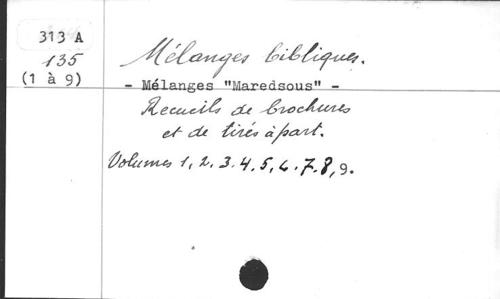 313 A
135
(1 à 9)
Mélanges bibliques.
- Mélanges "Maredsous" -
Recueils de brochures
et de tirés à part.
Volumes 1, 2. 3. 4. 5, 6. 7. 8, 9.